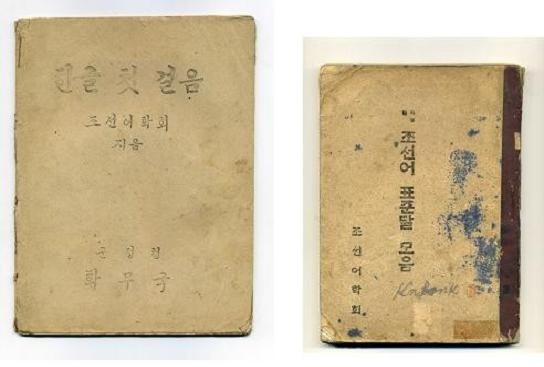 한글 첫 걸음
조선어학회
지음
군정청
학무국
조선어 표준말 모음
조선어학회